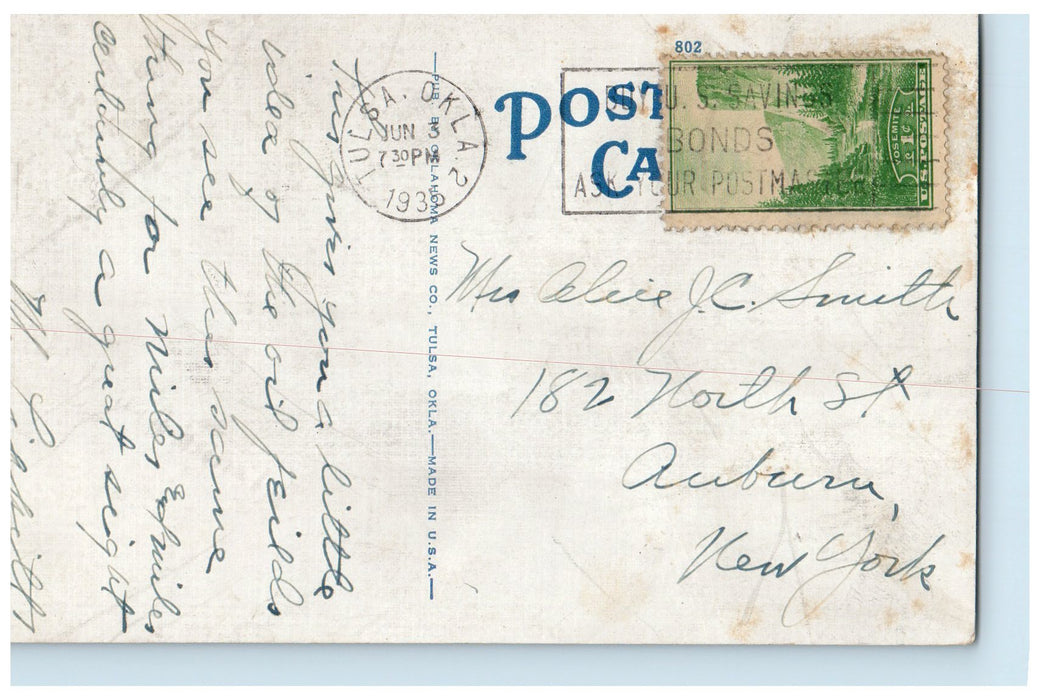 This gives you a little
idea of the oil feilds
you see this same
thing for Miles & miles
certainly a great sight
PUB. BY OKLAHOMA NEWS CO., TULSA, OKLA.—MADE IN U.S.A.
TULSA, OKLA. 2
JUN 3
7 30 PM
802
POST
CA
BUY U. S. SAVINGS
BONDS
ASK YOUR POSTMASTER
YOSEMITE
U.S. POSTAGE
Mrs Alice J.C. Smith
182 North St
Auburn,
New York